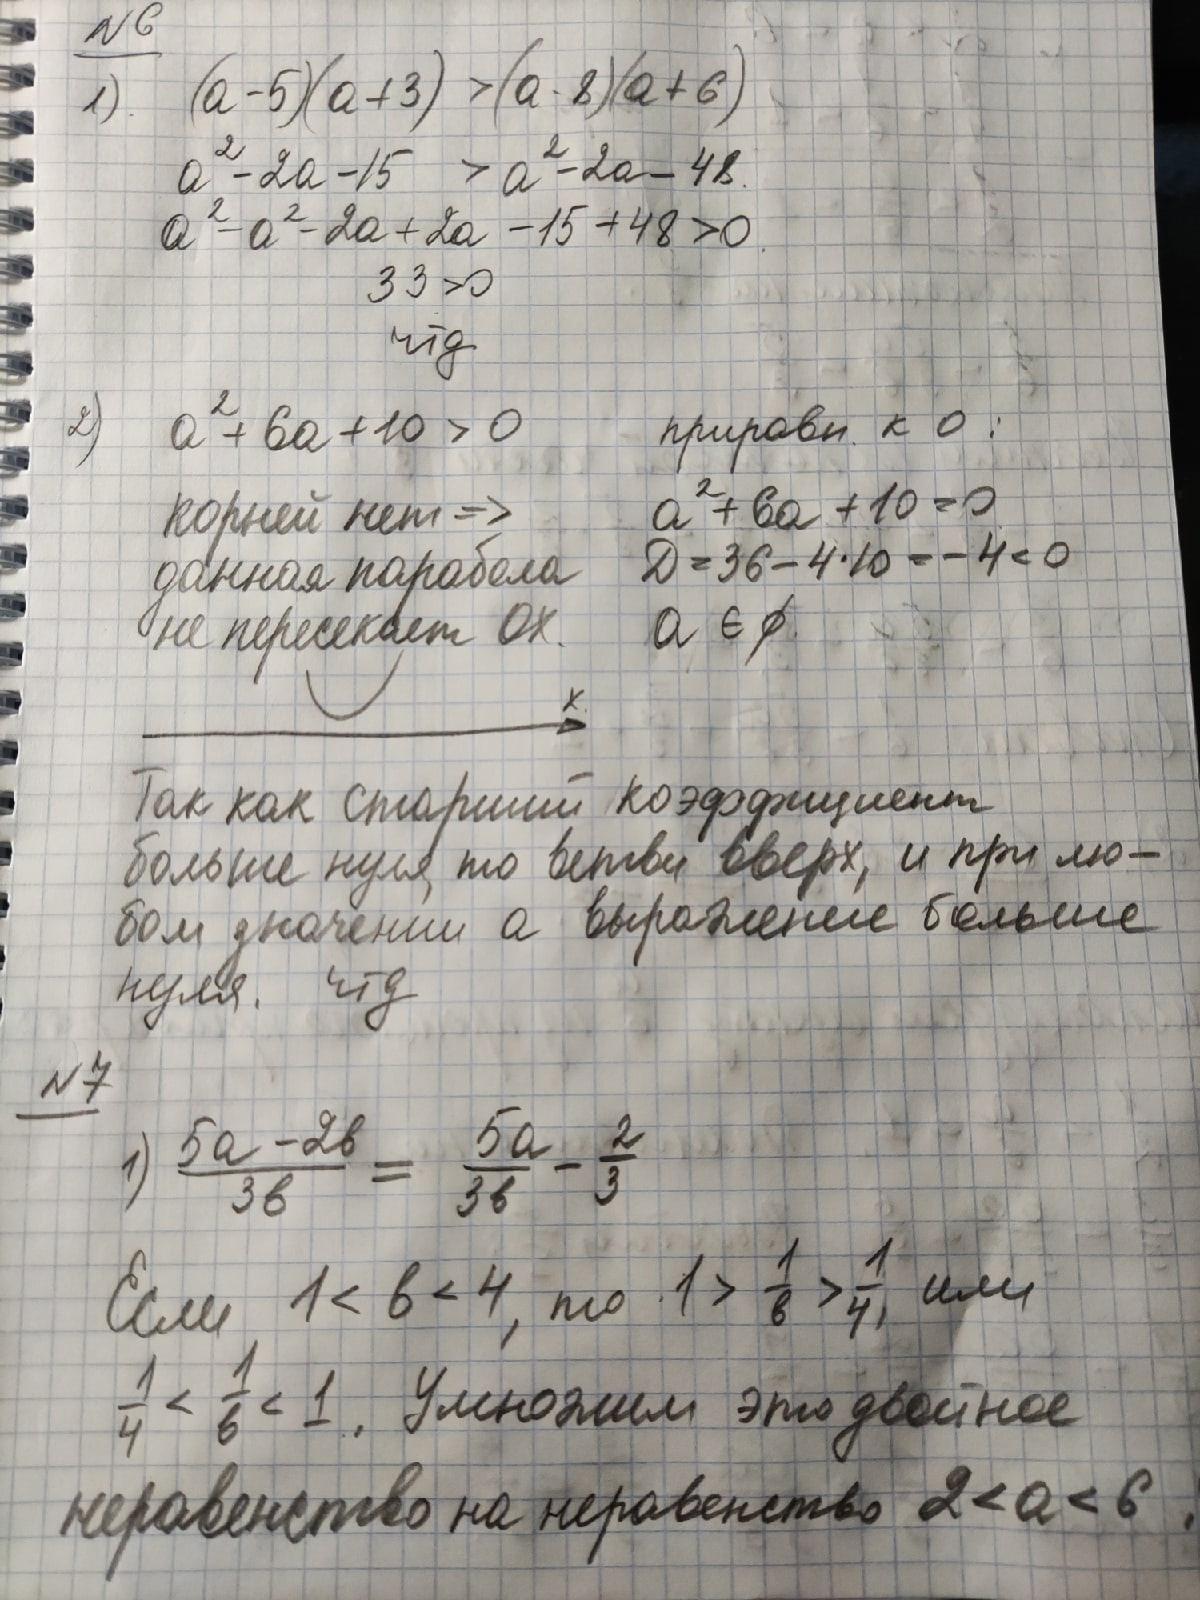 №6
1). (a-5)(a+3) > (a-8)(a+6)
a²-2a-15 > a²-2a-48.
a²-a²-2a+2a-15+48>0.
33>0
чтд
2) a²+6a+10 > 0 приравн. к 0 :
корней нет => a²+6a+10=0
данная парабола D=36-4·10=-4<0
не пересекает ОХ. a ∈ ∅.
x
Так как старший коэффициент
больше нуля, то ветви вверх, и при лю-
бом значении a выражение больше
нуля. чтд
№7
1) (5a-2в)/(3в) = 5a/(3в) - 2/3
Если 1 < в < 4, то 1 > 1/в > 1/4, или
1/4 < 1/в < 1. Умножим это двойное
неравенство на неравенство 2<a<6.